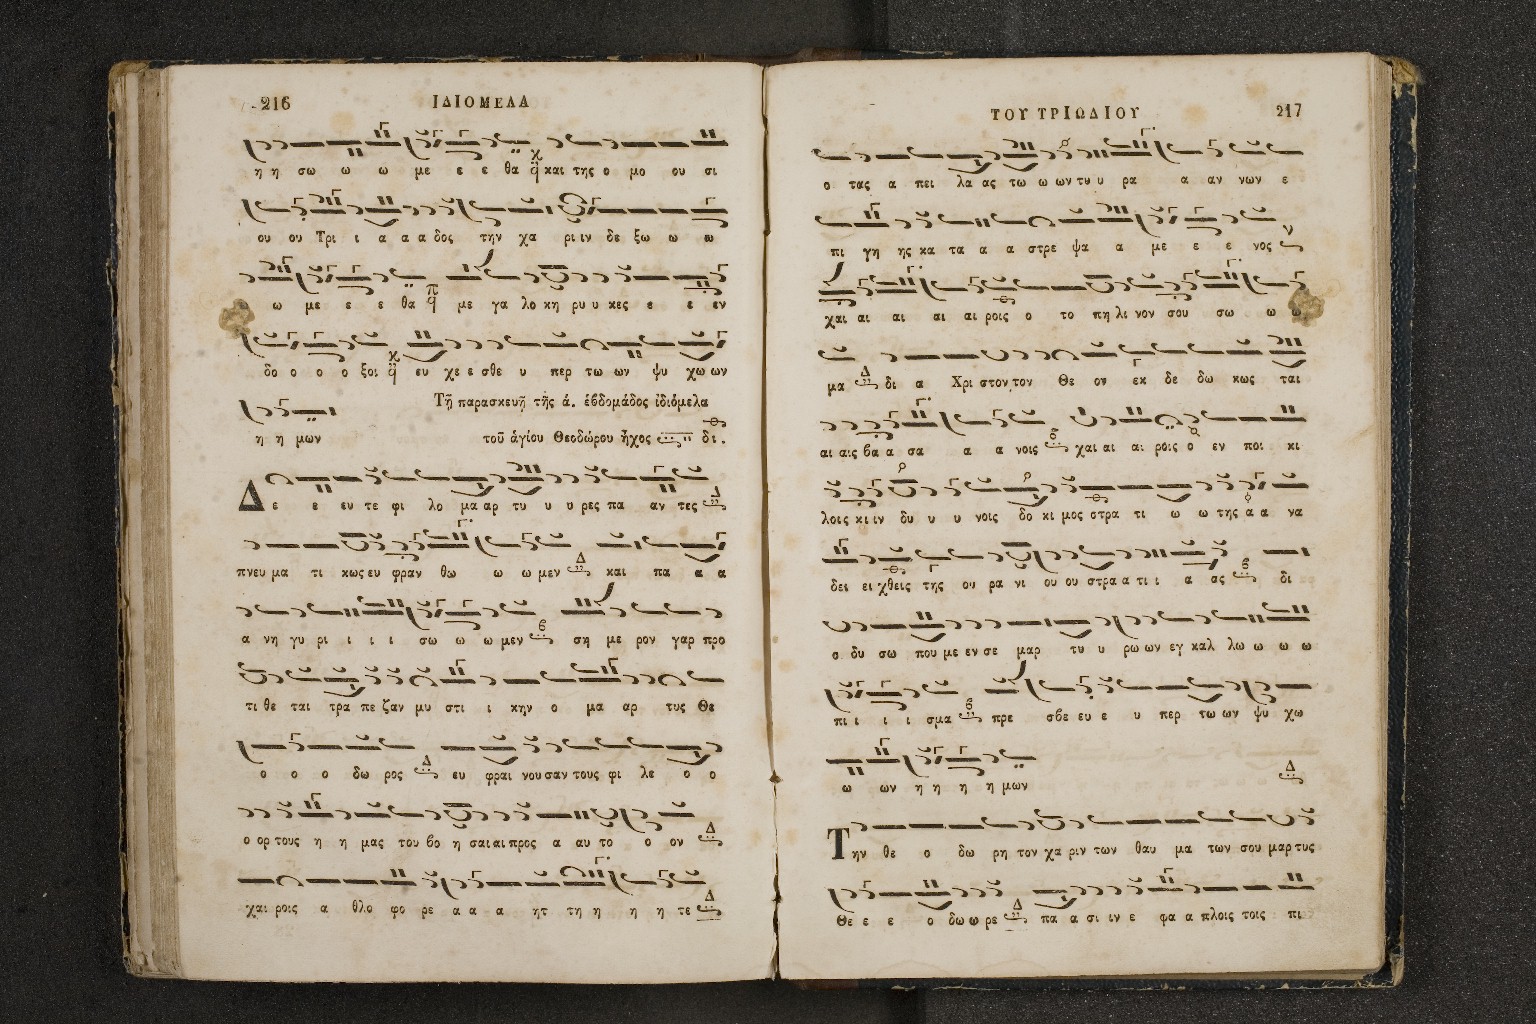 216 ΙΔΙΟΜΕΛΑ
η η σω ω ω με ε ε θα και της ο μο ου σι
ου ου Τρι ι α α α δος την χα ρι ιν δε ξω ω ω
ω με ε ε θα με γα λο κη ρυ υ κες ε ε εν
δο ο ο ο ξοι ευ χε ε σθε υ περ τω ων ψυ χω ων
Τῇ παρασκευῇ τῆς ά. ἑβδομάδος ἰδιόμελα
η η μων τοῦ ἁγίου Θεοδώρου ἦχος δι.
Δε ε ευ τε φι λο μα αρ τυ υ υ ρες πα αν τες
πνευ μα τι κως ευ φραν θω ω ω μεν και πα α α
α νη γυ ρι ι ι ι σω ω ω μεν ση με ρον γαρ προ
τι θε ται τρα πε ζαν μυ στι ι κην ο μα αρ τυς Θε
ο ο ο δω ρος ευ φραι νου σαν τους φι λε ο ο
ο ορ τους η η μας του βο η σαι αι προς α αυ το ο ον
χαι ροις α θλο φο ρε α α α ητ τη η η η τε
ΤΟΥ ΤΡΙΩΔΙΟΥ 217
ο τας α πει λα ας τω ω ων τυ υ ρα α αν νων ε
πι γη ης κα τα α α στρε ψα α με ε ε νος
χαι αι αι αι αι ροις ο το πη λι νον σου σω ω ω
μα δι α Χρι στον τον Θε ον εκ δε δω κως ται
αι αις βα α σα α α νοις χαι αι αι ροις ο εν ποι κι
λοις κι ιν δυ υ υ νοις δο κι μος στρα τι ω ω της α α να
δει ει χθεις της ου ρα νι ου ου στρα α τι ι α ας δι
ο δυ σω που με εν σε μαρ τυ υ ρω ων εγ καλ λω ω ω ω
πι ι ι ι σμα πρε σβε ευ ε υ περ τω ων ψυ χω
ω ων η η η η μων
Την θε ο δω ρη τον χα ριν των θαυ μα των σου μαρ τυς
Θε ε ε ο δω ω ρε πα α σι ιν ε φα α πλοις τοις πι